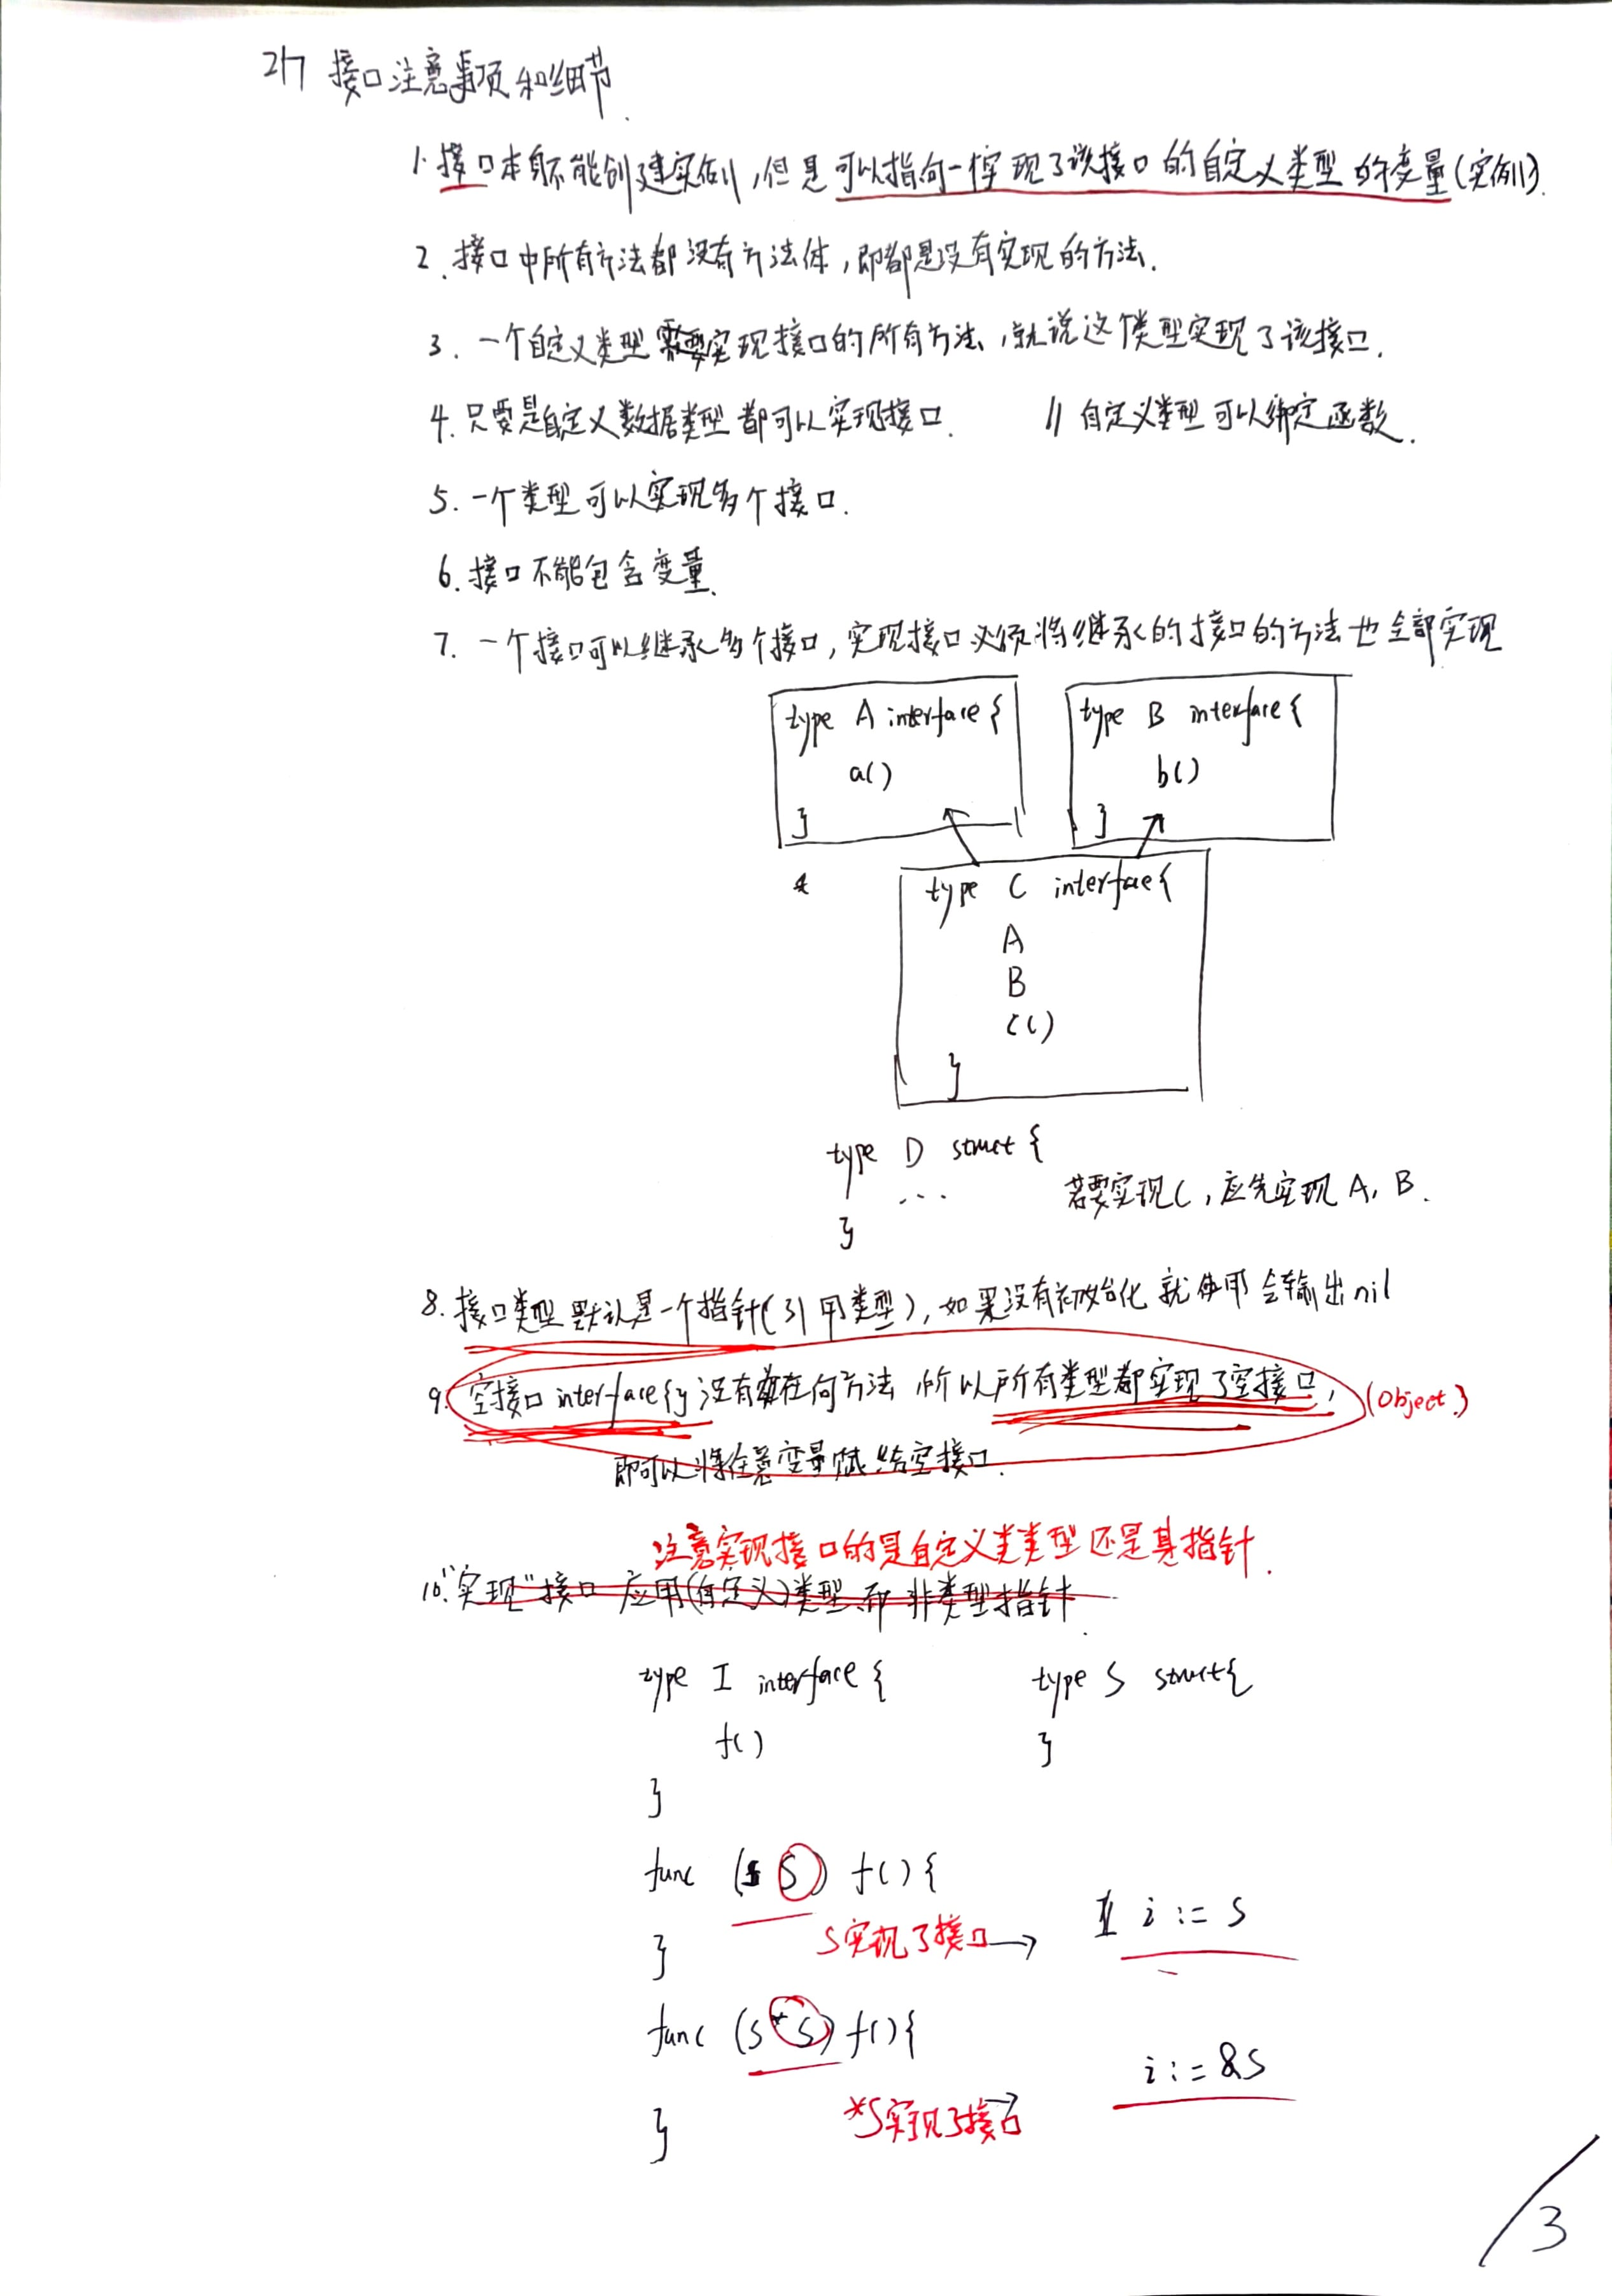 217 接口注意事项和细节.
1. 接口本身不能创建实例,但是可以指向一个实现了该接口的自定义类型的变量(实例).
2. 接口中所有方法都没有方法体,即都是没有实现的方法.
3. 一个自定义类型需要实现接口的所有方法,就说这个类型实现了该接口.
4. 只要是自定义数据类型都可以实现接口. // 自定义类型可以绑定函数.
5. 一个类型可以实现多个接口.
6. 接口不能包含变量.
7. 一个接口可以继承多个接口,实现接口必须将继承的接口的方法也全部实现
type A interface {
a()
}
type B interface {
b()
}
type C interface {
A
B
c()
}
type D struct {
...
}
若要实现C,应先实现A, B.
8. 接口类型默认是一个指针(引用类型),如果没有初始化就使用会输出nil
9. 空接口 interface{} 没有任何方法 所以所有类型都实现了空接口, (Object.)
即可以将任意变量赋给空接口.
注意实现接口的是自定义类类型还是其指针.
10. "实现"接口 应用(自定义)类型 而非类型指针.
type I interface {
f()
}
type S struct{
}
func (s S) f() {
}
S实现了接口 → i := s
func (s *S) f() {
}
*S实现了接口 → i := &s
3